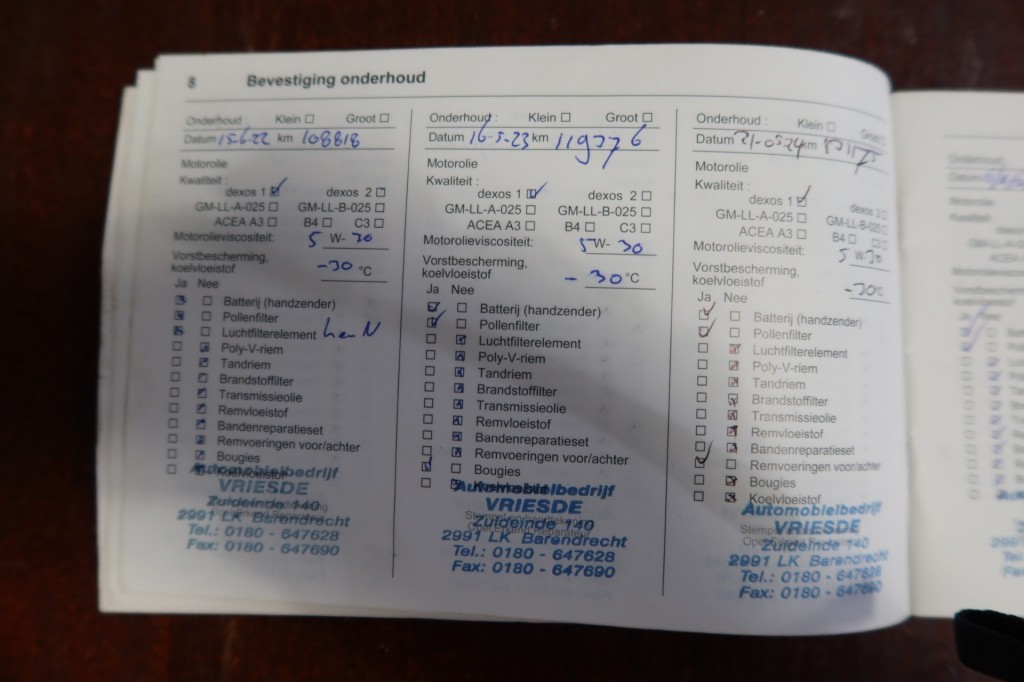 8 Bevestiging onderhoud
Onderhoud : Klein ☐ Groot ☐
Datum 15-6-22 km 108818
Motorolie
Kwaliteit :
dexos 1 ☑ dexos 2 ☐
GM-LL-A-025 ☐ GM-LL-B-025 ☐
ACEA A3 ☐ B4 ☐ C3 ☐
Motorolieviscositeit: 5 W- 30
Vorstbescherming,
koelvloeistof -30 °C
Ja Nee
Batterij (handzender)
Pollenfilter
Luchtfilterelement
Poly-V-riem
Tandriem
Brandstoffilter
Transmissieolie
Remvloeistof
Bandenreparatieset
Remvoeringen voor/achter
Bougies
Koelvloeistof
Automobielbedrijf
VRIESDE
Zuideinde 140
2991 LK Barendrecht
Tel.: 0180 - 647628
Fax: 0180 - 647690
Onderhoud : Klein ☐ Groot ☐
Datum 16-5-23 km 119776
Motorolie
Kwaliteit :
dexos 1 ☑ dexos 2 ☐
GM-LL-A-025 ☐ GM-LL-B-025 ☐
ACEA A3 ☐ B4 ☐ C3 ☐
Motorolieviscositeit: 5 W- 30
Vorstbescherming,
koelvloeistof - 30 °C
Ja Nee
Batterij (handzender)
Pollenfilter
Luchtfilterelement
Poly-V-riem
Tandriem
Brandstoffilter
Transmissieolie
Remvloeistof
Bandenreparatieset
Remvoeringen voor/achter
Bougies
Koelvloeistof
Automobielbedrijf
VRIESDE
Zuideinde 140
2991 LK Barendrecht
Tel.: 0180 - 647628
Fax: 0180 - 647690
Onderhoud : Klein ☐ Groot ☐
Datum 21-05-24 km
Motorolie
Kwaliteit :
dexos 1 ☑ dexos 2 ☐
GM-LL-A-025 ☐ GM-LL-B-025 ☐
ACEA A3 ☐ B4 ☐ C3 ☐
Motorolieviscositeit: 5 W-30
Vorstbescherming,
koelvloeistof -30°C
Ja Nee
Batterij (handzender)
Pollenfilter
Luchtfilterelement
Poly-V-riem
Tandriem
Brandstoffilter
Transmissieolie
Remvloeistof
Bandenreparatieset
Remvoeringen voor/achter
Bougies
Koelvloeistof
Automobielbedrijf
VRIESDE
Zuideinde 140
2991 LK Barendrecht
Tel.: 0180 - 647628
Fax: 0180 - 647690